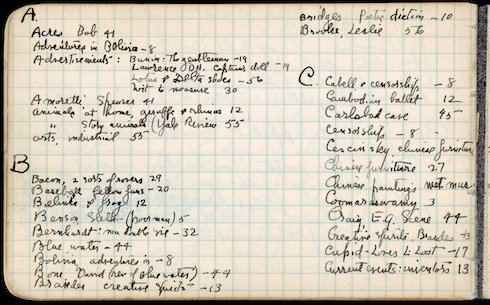 A.
Acres Bob 41
Adventures in Bolivia - 8
Advertisements: Bunin: The gentleman - 19
Lawrence D.H. Captains doll - 19
Lotus & Delta shoes - 56
to measure 30
Amoretti Spenser 41
animals at home, giraffe & rhinos 12
" Story animals (Yale Review 55
arts, industrial 55
B
Bacon, 2 sorts of rovers 29
Baseball fellow fans - 20
12
Benson Stella - (poor man) 5
Bernhardt: ma double vie - 32
Blue water - 44
Bolivia adventures in - 8
Bone, David (rev of blue water) - 44
Brandes creative spirits - 13
Bridges Poetic diction - 10
Brooke, Leslie 56
C. Cabell & censorship - 8
Cambodian ballet 12
Carlsbad cave 45
Censorship - 8
Cescinsky chinese furniture
Chinese furniture 27
Chinese paintings met. mus.
Coomaraswamy 3
Craig, E.G. Scene 44
Creative Spirits Brandes - 13
Cupid - Loves L. Lost - 17
Current events: inventors 13